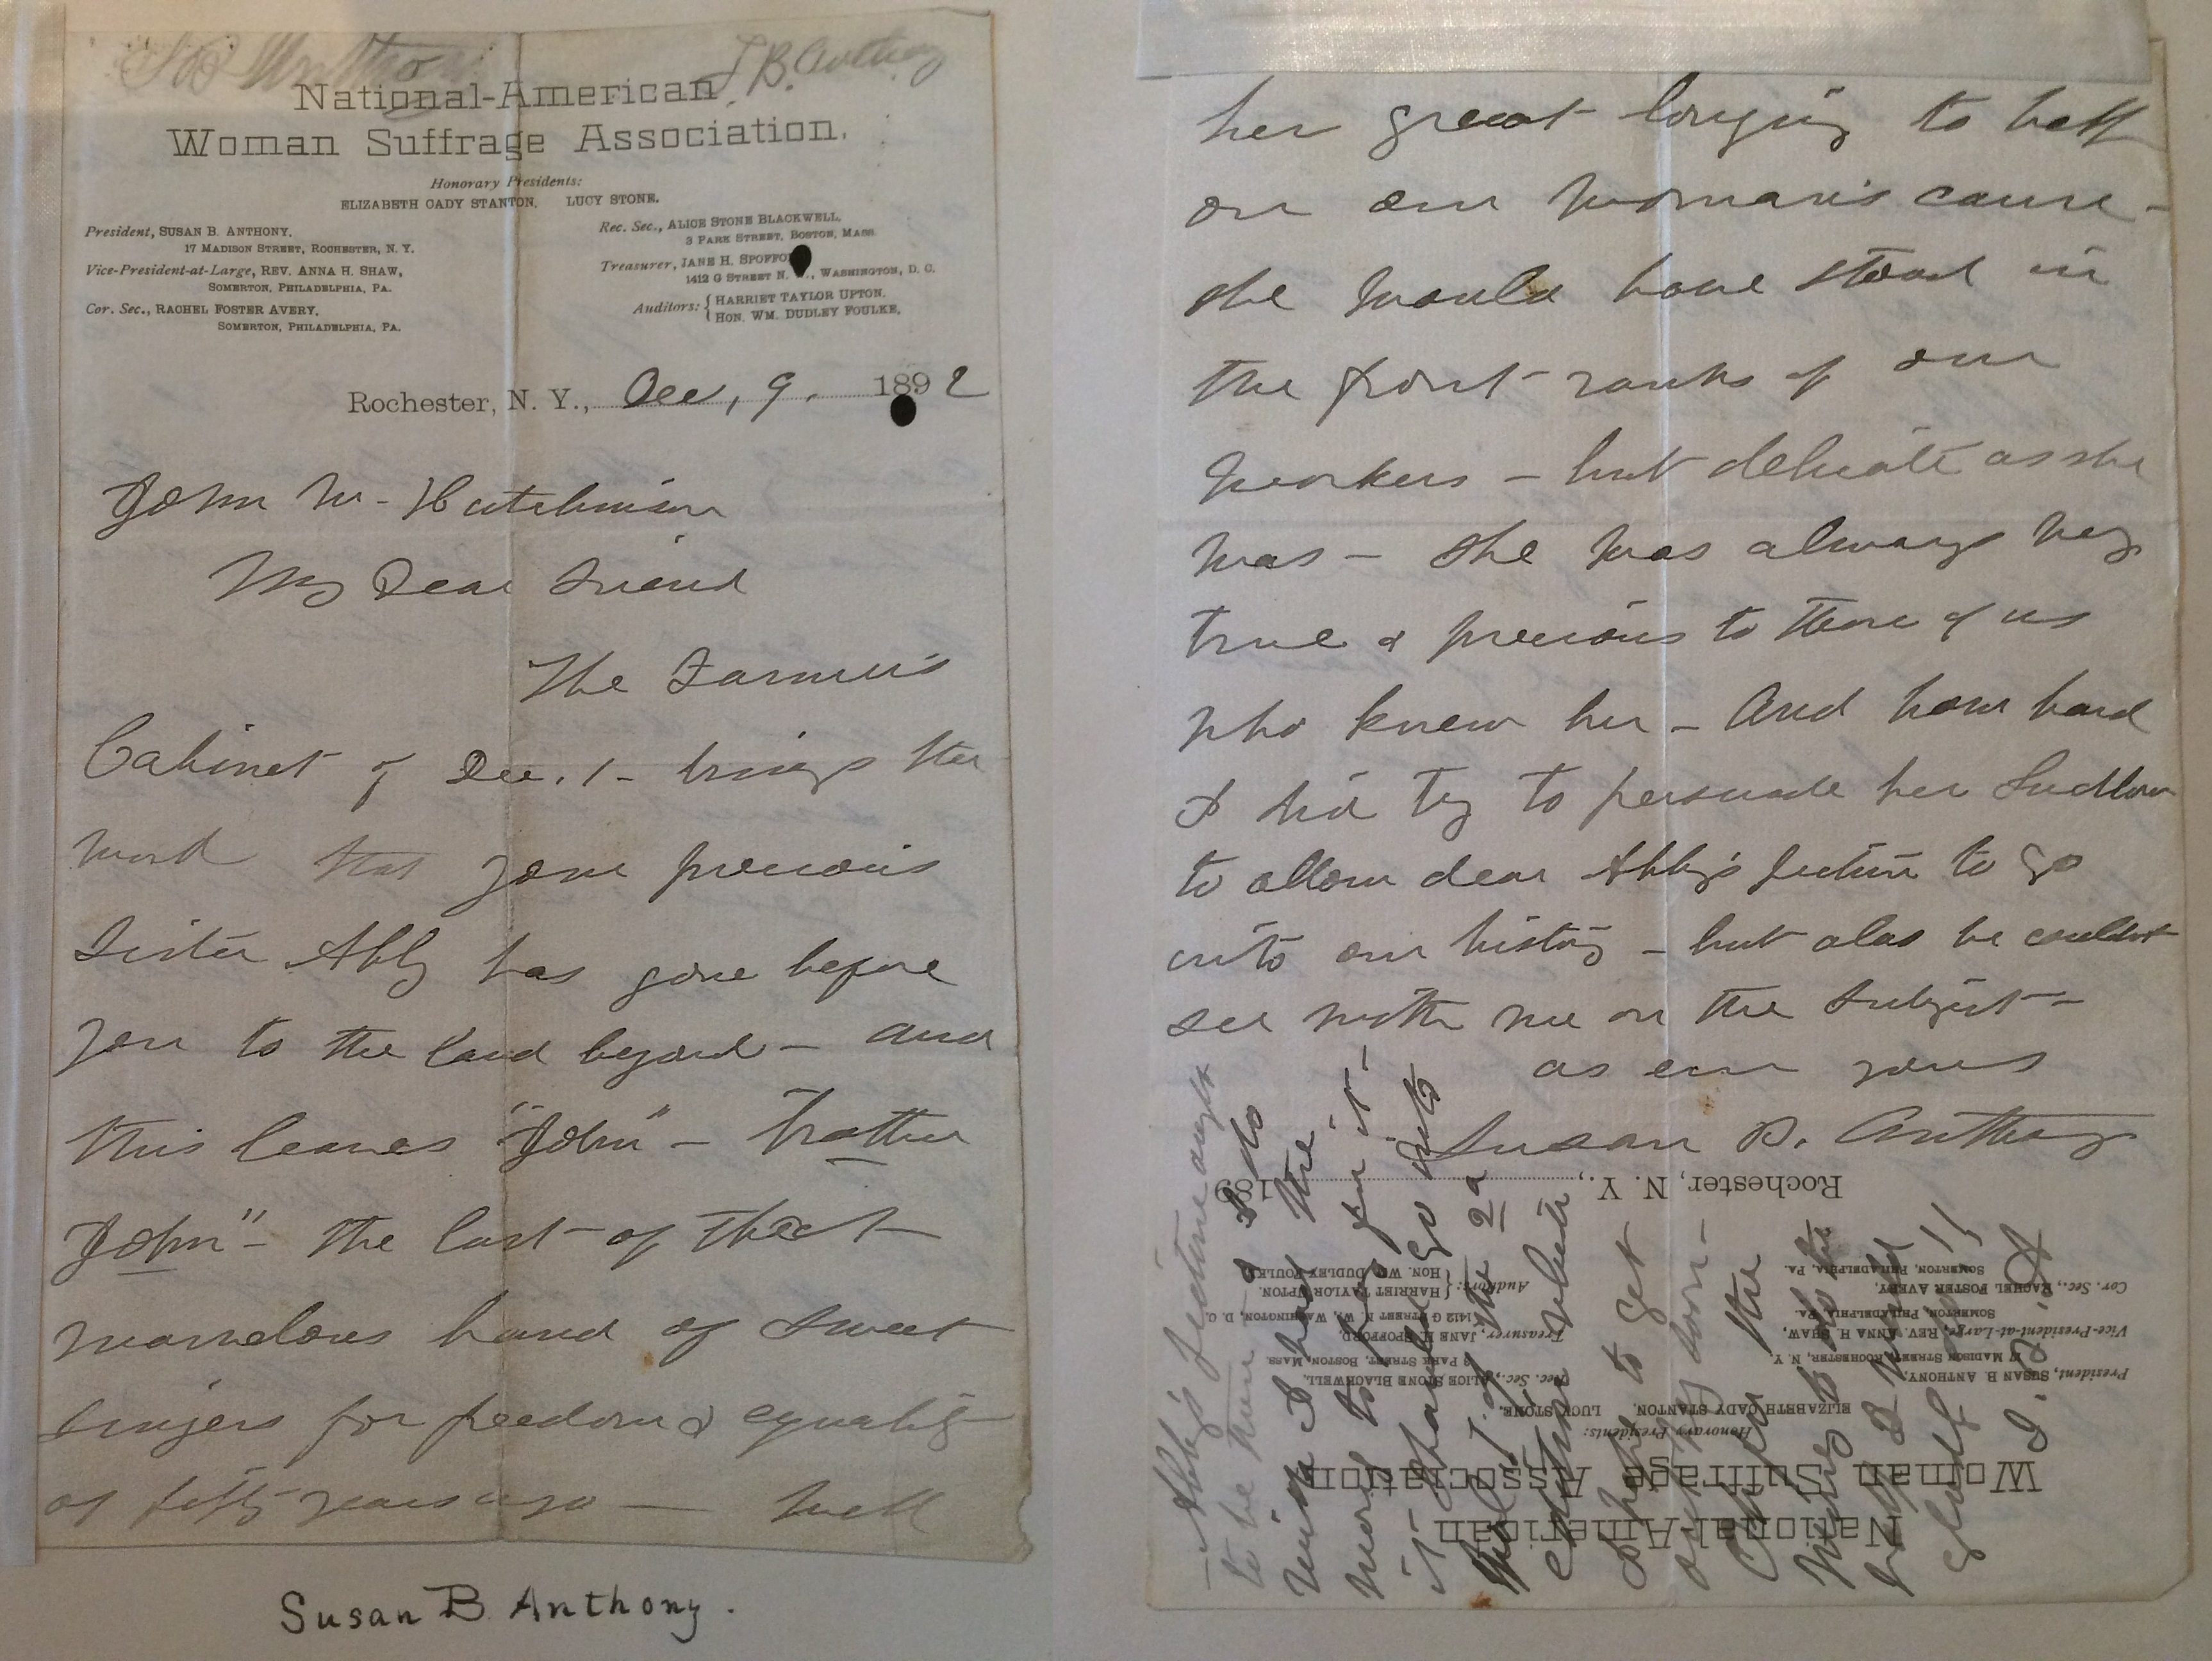 S B Anthony
S. B. Anthony
National-American
Woman Suffrage Association.
Honorary Presidents:
ELIZABETH CADY STANTON, LUCY STONE.
President, SUSAN B. ANTHONY,
17 MADISON STREET, ROCHESTER, N. Y.
Vice-President-at-Large, REV. ANNA H. SHAW,
SOMERTON, PHILADELPHIA, PA.
Cor. Sec., RACHEL FOSTER AVERY,
SOMERTON, PHILADELPHIA, PA.
Rec. Sec., ALICE STONE BLACKWELL,
3 PARK STREET, BOSTON, MASS.
Treasurer, JANE H. SPOFFO
1412 G STREET N. , WASHINGTON, D. C.
Auditors: { HARRIET TAYLOR UPTON,
HON. WM. DUDLEY FOULKE,
Rochester, N. Y., Dec, 9. 1892
John W. Hutchinson
My Dear Friend
The Farmer's
Cabinet of Dec. 1 - brings the
word that your precious
Sister Abby has gone before
you to the land beyond - and
this leaves "John" - brother
John" - the last of that
marvelous band of sweet
singers for freedom & equality
of fifty years ago - Well
Susan B Anthony.
her great longing to help
on our woman's cause -
she would have stood in
the front ranks of our
workers - but delicate as she
was - she was always very
true & precious to those of us
who knew her - And how hard
I did try to persuade her Ludlow
to allow dear Abby's picture to go
into our history - but alas he couldn't
see with me on the subject -
as ever yours
Susan B. Anthony
Rochester, N. Y., 189
National-American
Woman Suffrage Association
Honorary Presidents:
ELIZABETH CADY STANTON, LUCY STONE.
President, SUSAN B. ANTHONY,
17 MADISON STREET, ROCHESTER, N. Y.
Vice-President-at-Large, REV. ANNA H. SHAW,
SOMERTON, PHILADELPHIA, PA.
Cor. Sec., RACHEL FOSTER AVERY,
SOMERTON, PHILADELPHIA, PA.
Rec. Sec., ALICE STONE BLACKWELL,
3 PARK STREET, BOSTON, MASS.
Treasurer, JANE H. SPOFFORD,
1412 G STREET N. W., WASHINGTON, D. C.
Auditors: { HARRIET TAYLOR UPTON,
HON. WM. DUDLEY FOULKE
- Abby's picture ought
to be there - I do
wish I had the
money to pay for it -
it should go into
Vol. 1. of the 2d
edition
I hope to get
out my
the
to do the
I would
glad if !!
S. B. A